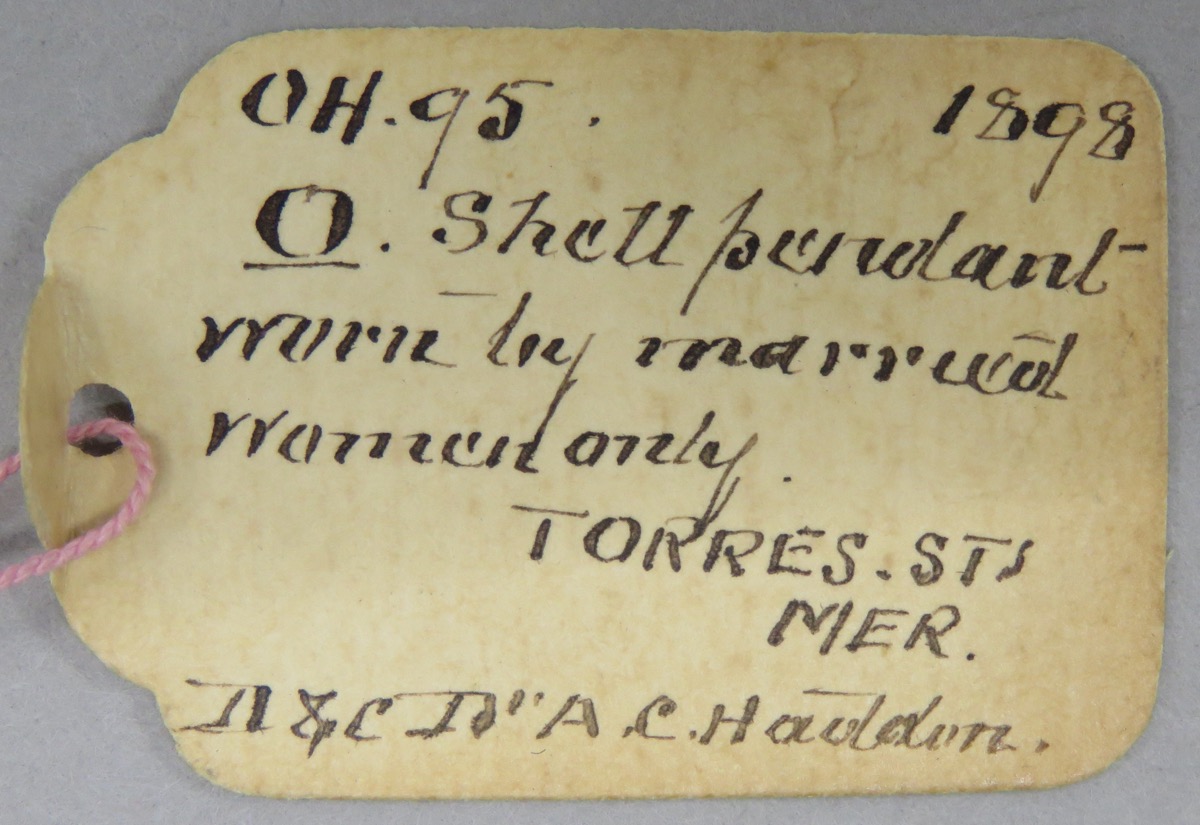 OH.95. 1898
O. Shell pendant
worn by married
women only.
TORRES. STS
MER.
D & C Dr A.C. Haddon.